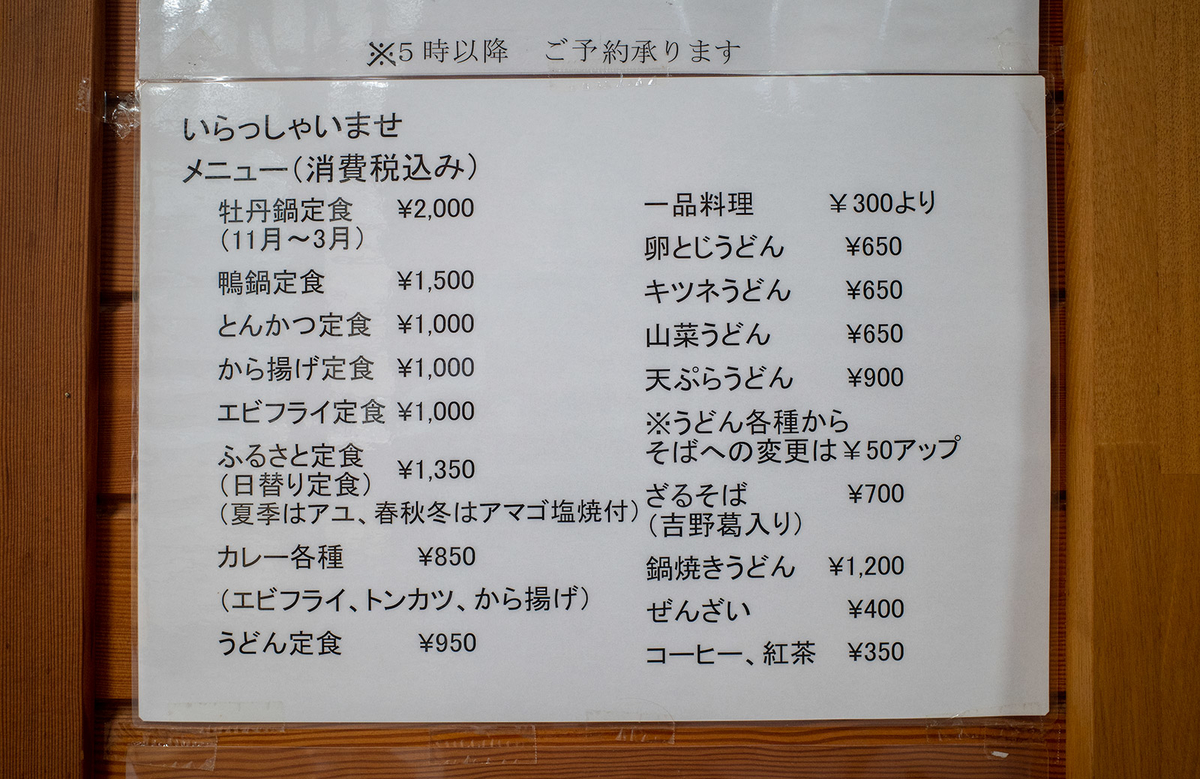 ※5時以降 ご予約承ります
いらっしゃいませ
メニュー(消費税込み)
牡丹鍋定食 ¥2,000
(11月~3月)
鴨鍋定食 ¥1,500
とんかつ定食 ¥1,000
から揚げ定食 ¥1,000
エビフライ定食 ¥1,000
ふるさと定食
(日替り定食) ¥1,350
(夏季はアユ、春秋冬はアマゴ塩焼付)
カレー各種 ¥850
(エビフライ、トンカツ、から揚げ)
うどん定食 ¥950
一品料理 ¥300より
卵とじうどん ¥650
キツネうどん ¥650
山菜うどん ¥650
天ぷらうどん ¥900
※うどん各種から
そばへの変更は¥50アップ
ざるそば ¥700
(吉野葛入り)
鍋焼きうどん ¥1,200
ぜんざい ¥400
コーヒー、紅茶 ¥350